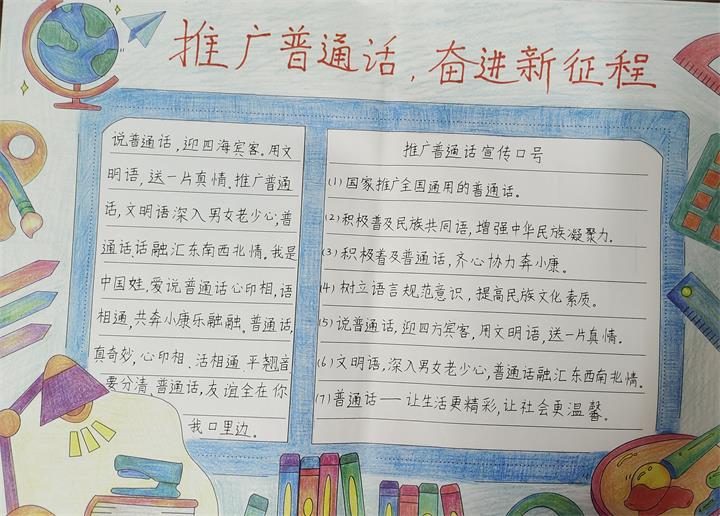 推广普通话，奋进新征程
说普通话，迎四海宾客。用文
明语，送一片真情。推广普通
话，文明语深入男女老少心，普
通话话融汇东南西北情。我是
中国娃，爱说普通话心印相，语
相通，共奔小康乐融融。普通话，
真奇妙，心印相、活相通，平翘音
要分清、普通话，友谊全在你
我口里边。
推广普通话宣传口号
(1)国家推广全国通用的普通话。
(2)积极普及民族共同语，增强中华民族凝聚力。
(3)积极普及普通话，齐心协力奔小康。
(4)树立语言规范意识，提高民族文化素质。
(5)说普通话，迎四方宾客，用文明语，送一片真情。
(6)文明语，深入男女老少心，普通话融汇东西南北情。
(7)普通话——让生活更精彩，让社会更温馨。